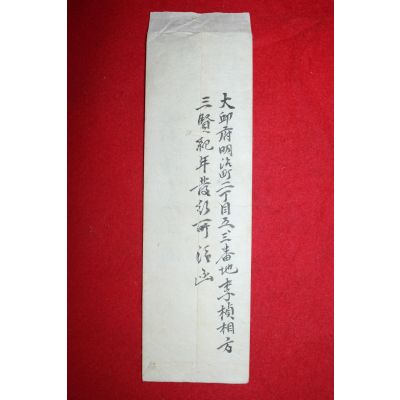 大邱府明治町二丁目五三番地李楨相方
三賢紀年發行所